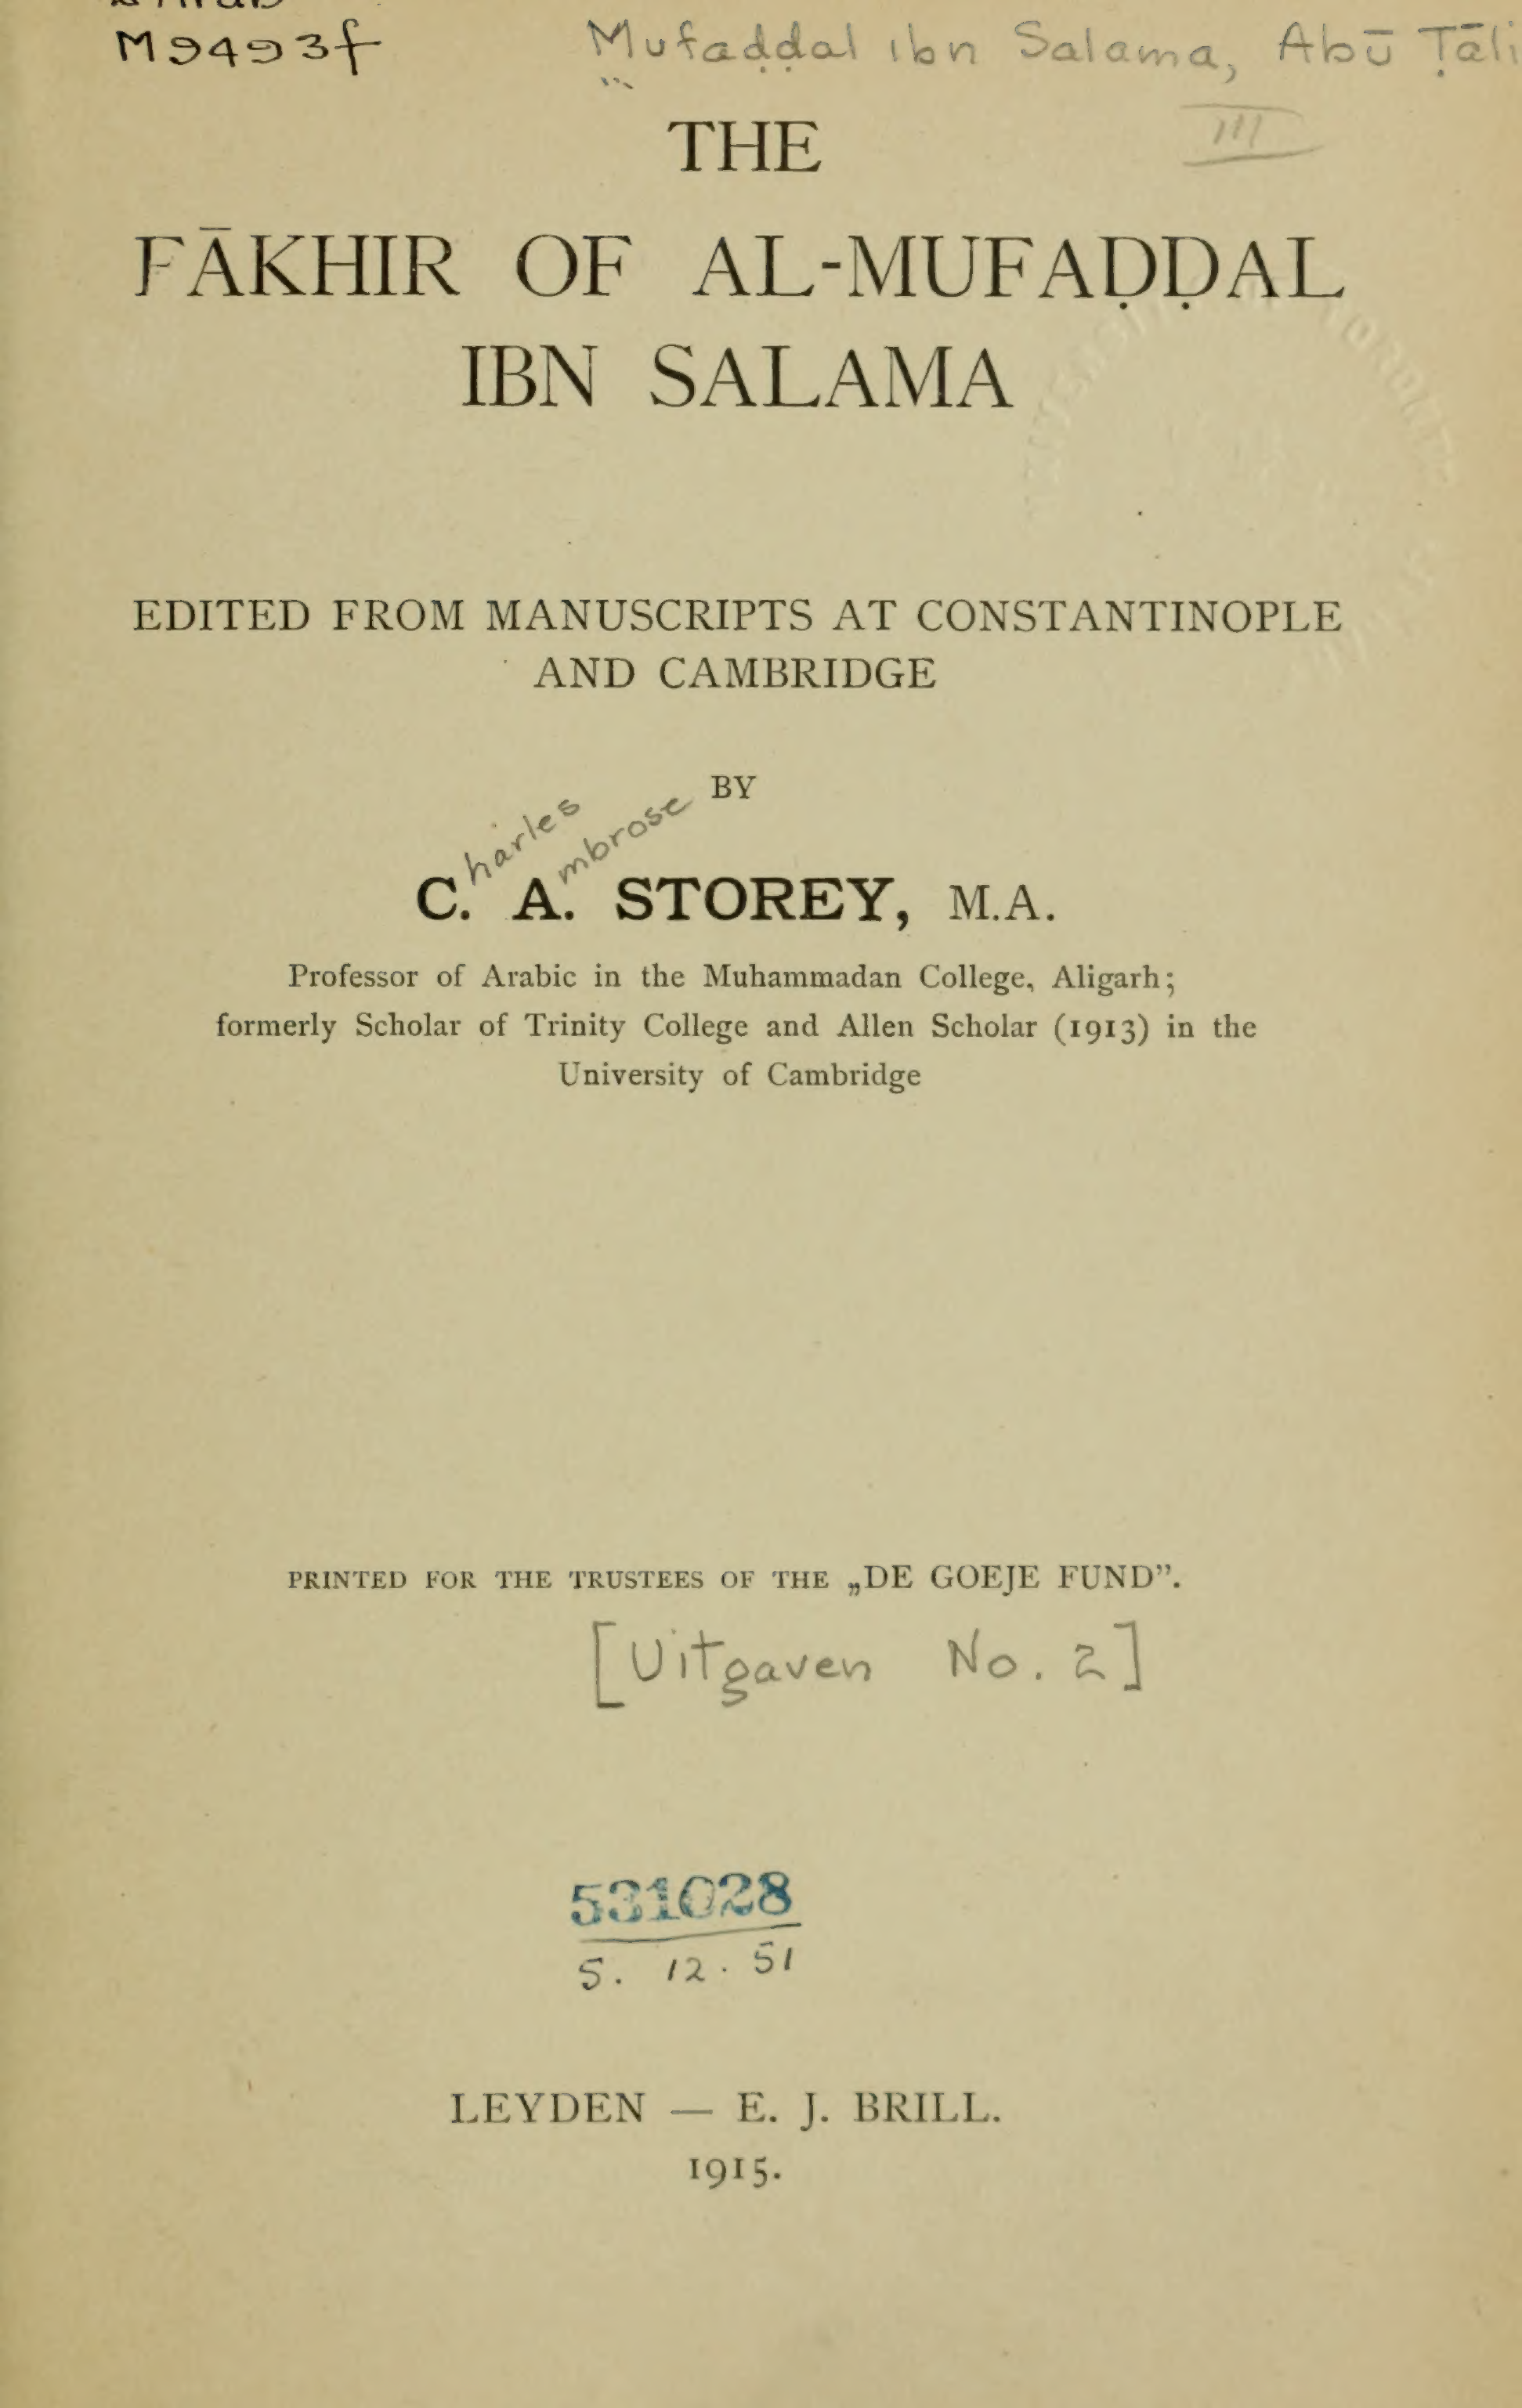 M9493f
Mufaḍḍal ibn Salama, Abū Ṭāli
III
THE
FĀKHIR OF AL-MUFAḌḌAL
IBN SALAMA
EDITED FROM MANUSCRIPTS AT CONSTANTINOPLE
AND CAMBRIDGE
BY
harles mbrose
C. A. STOREY, M.A.
Professor of Arabic in the Muhammadan College, Aligarh;
formerly Scholar of Trinity College and Allen Scholar (1913) in the
University of Cambridge
PRINTED FOR THE TRUSTEES OF THE „DE GOEJE FUND”.
[Uitgaven No. 2]
531028
5. 12. 51
LEYDEN — E. J. BRILL.
1915.